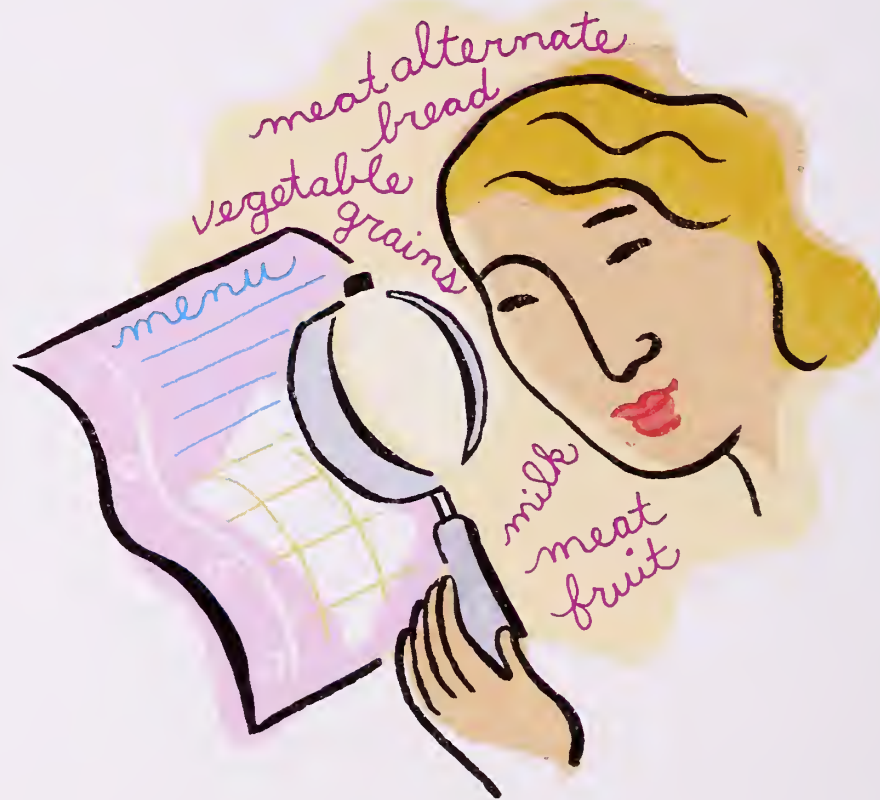 meat alternate
bread
vegetable
grains
menu
milk
meat
fruit